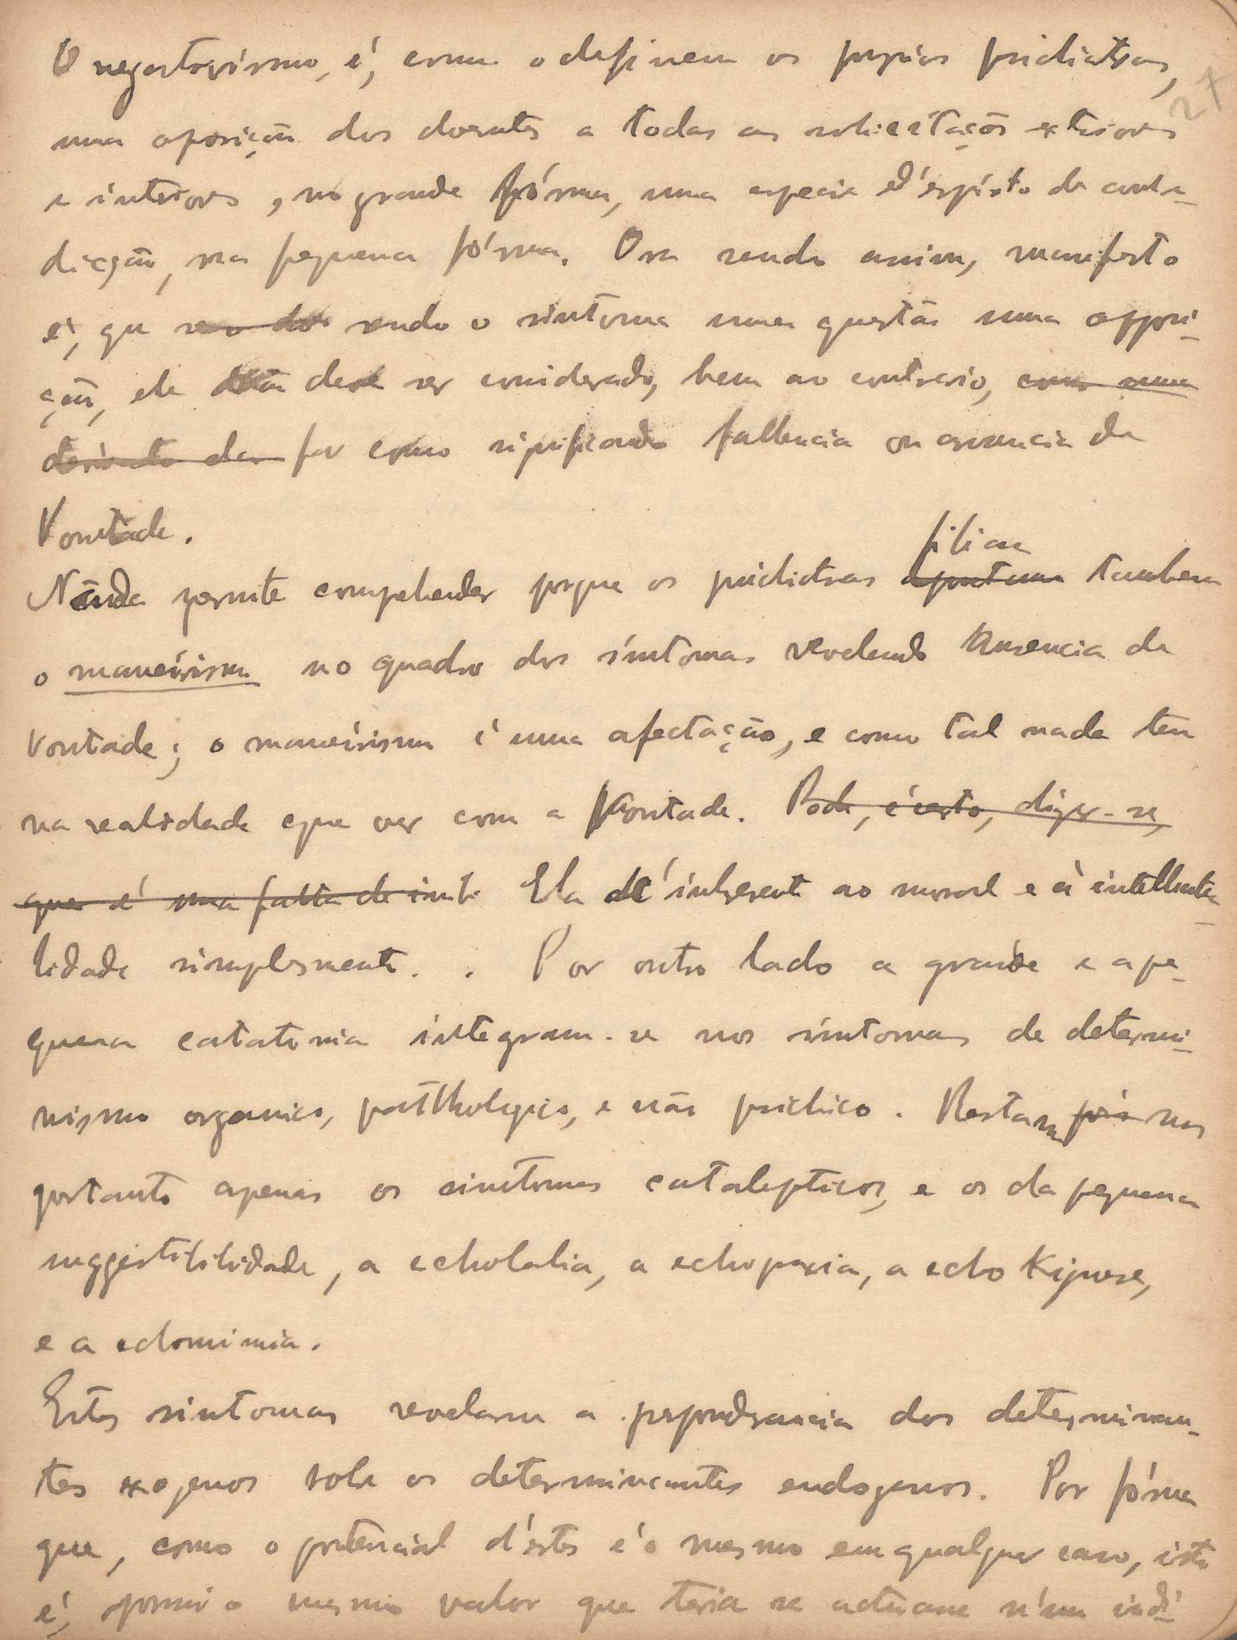 27
O negativismo, é, como o definem os proprios psichiatras,
uma oposição dos doentes a todas as solicitações exteriores
e interiores, na grande fórma, uma especie d'espirito de contra-
dicção, na pequena fórma. Ora sendo assim, manifesto
é, que sendo o sintoma uma questão uma opposi-
ção, ele deve ser considerado, bem ao contrario, como uma
derivante da por como significando fallencia ou ausencia da
Vontade.
Nada permite comprehender porque os psichiatras filiam tambem
o maneirismo no quadro dos síntomas revelando ausencia da
vontade; o maneirismo é uma afectação, e como tal nada tem
na realidade que ver com a Vontade. Pode, é certo, dizer-se,
que é uma falta de inte Ela é inherente ao moral e à intellectua-
lidade simplesmente. . Por outro lado a grande e a pe-
quena catatonia integram-se nos síntomas de determi-
nismo organico, pathologico, e não psichico. Restam pois nos
portanto apenas os sintomas catalepticos, e os da pequena
suggestibilidade, a echolalia, a echopraxia, a echo Kinese,
e a echomimia.
Estes sintomas revelam a preponderancia dos determinan-
tes exogenos sobre os determinantes endogenos. Por fórma
que, como o potencial d'estes é o mesmo em qualquer caso, isto
é, possui o mesmo valor que teria se actuasse n'um indi-